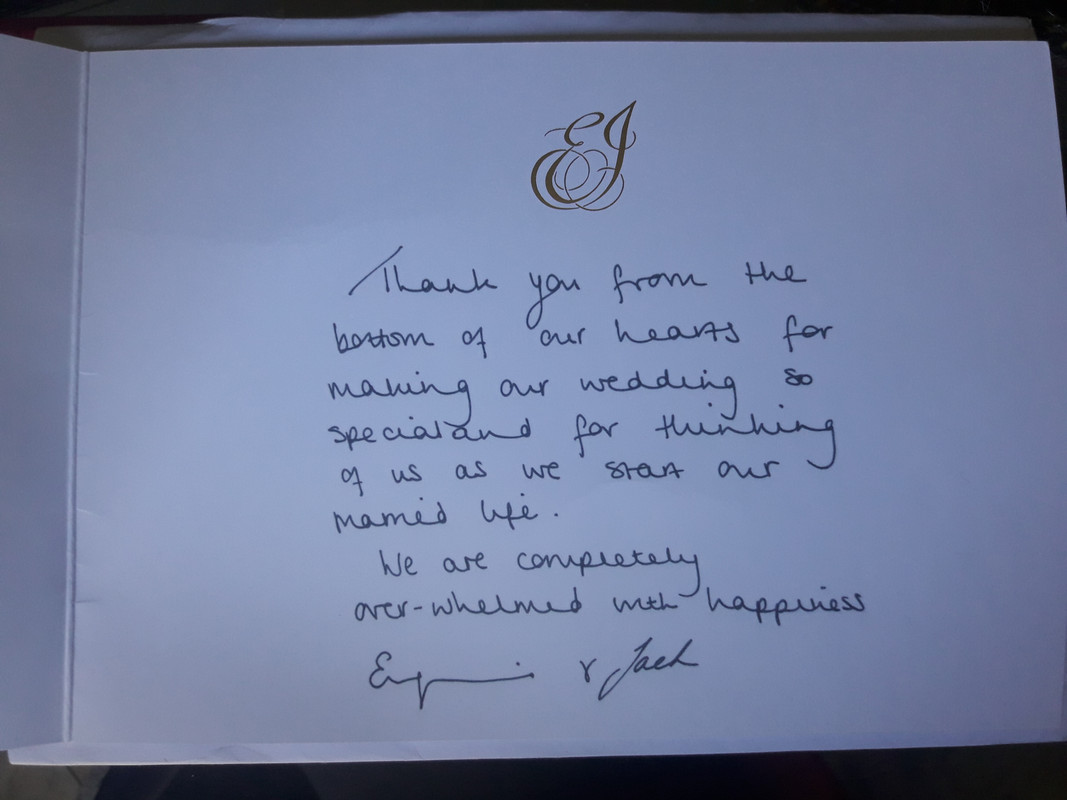 EJ
Thank you from the
bottom of our hearts for
making our wedding so
special and for thinking
of us as we start our
married life.
We are completely
over-whelmed with happiness
Eugenie & Jack